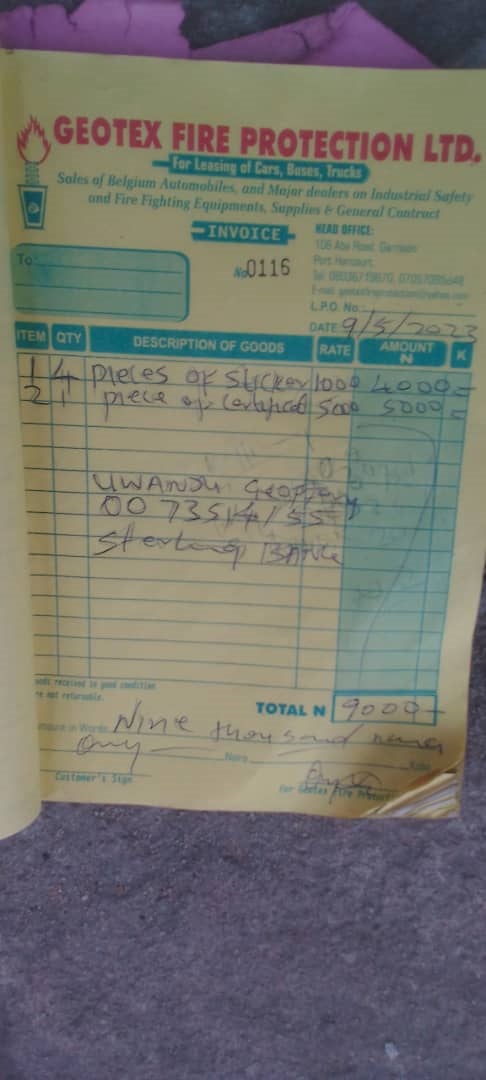 GEOTEX FIRE PROTECTION LTD.
For Leasing of Cars, Buses, Trucks
Sales of Belgium Automobiles, and Major dealers on Industrial Safety
and Fire Fighting Equipments, Supplies & General Contract
INVOICE
HEAD OFFICE:
To:
No 0116
106 Aba Road, Garrison
Port Harcourt.
L.P.O. No.:
DATE 9/5/2023
ITEM QTY DESCRIPTION OF GOODS RATE AMOUNT N K
1 4 pieces of sticker 1000 4000 =
2 1 piece of 5000 5000 =
UWANDU Geoffery
Sterling BANK
goods received in good condition
are not returnable.
TOTAL N 9000 -
Amount in Words Nine thousand naira
only Naira Kobo
Customer's Sign
for Geotex Fire Protect